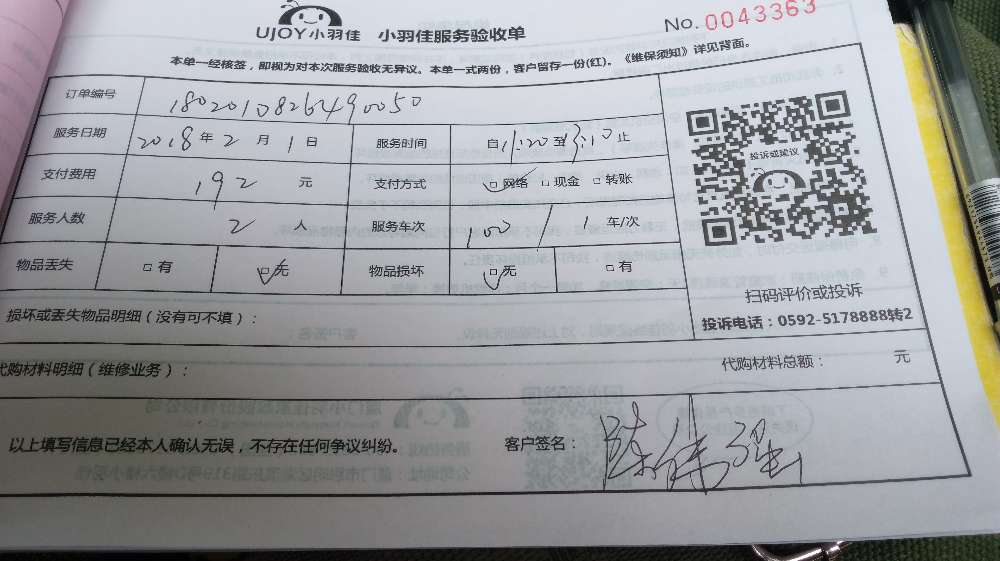 UJOY小羽佳 小羽佳服务验收单 No. 0043363
本单一经核签，即视为对本次服务验收无异议。本单一式两份，客户留存一份(红)。《维保须知》详见背面。
订单编号 1802010826490050
服务日期 2018年2月1日 服务时间 自11:20至13:10止
支付费用 192元 支付方式 网络 现金 转账
服务人数 2人 服务车次 100/1车/次
物品丢失 有 无 物品损坏 无 有
投诉或建议
扫码评价或投诉
投诉电话：0592-5178888转2
损坏或丢失物品明细（没有可不填）：
代购材料明细（维修业务）： 代购材料总额： 元
以上填写信息已经本人确认无误，不存在任何争议纠纷。 客户签名： 陈伟强